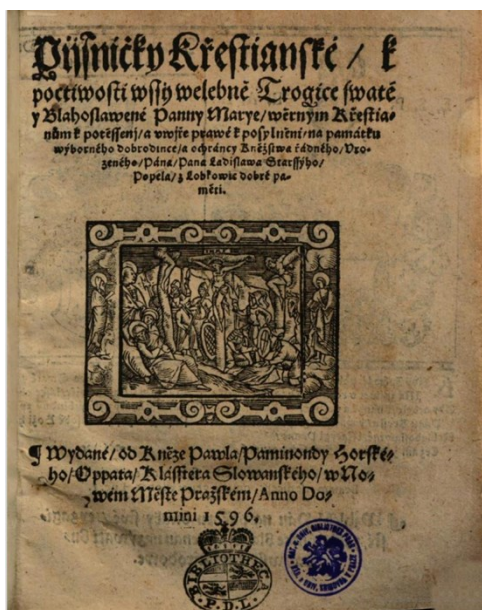 Pijsničky Křestianské / k
poctiwosti wssij welebné Trogice swaté
y Blahoslawené Panny Marye / wěrným Křestia-
nům k potěssenj / a wvjře prawé k posylněnj / na památku
wýborného dobrodince / a ochráncy Kněžstwa řádného / Vro-
zeného / Pána / Pana Ladislawa Starssýho /
Popela / z Lobkowic dobré pa-
měti.
¶ Wydané / od Kněze Pawla / Paminondy Horské-
ho / Oppata / Klásstera Slowanského / w No-
wém Městě Pražském / Anno Do-
mini 1596.
BIBLIOTHECA
P. D. L.